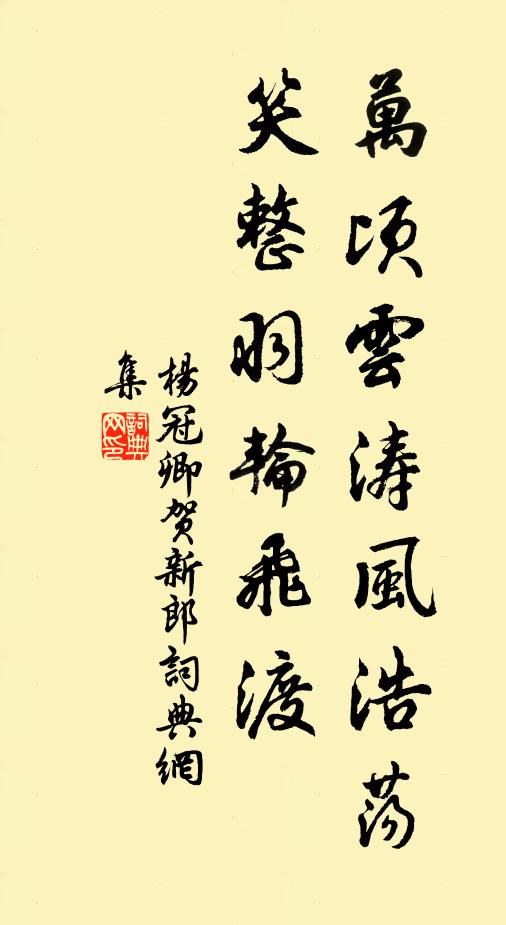 萬頃雲涛風浩蕩
笑整羽輪飛渡
楊冠卿賀新郎詞典網
集
詞典网印